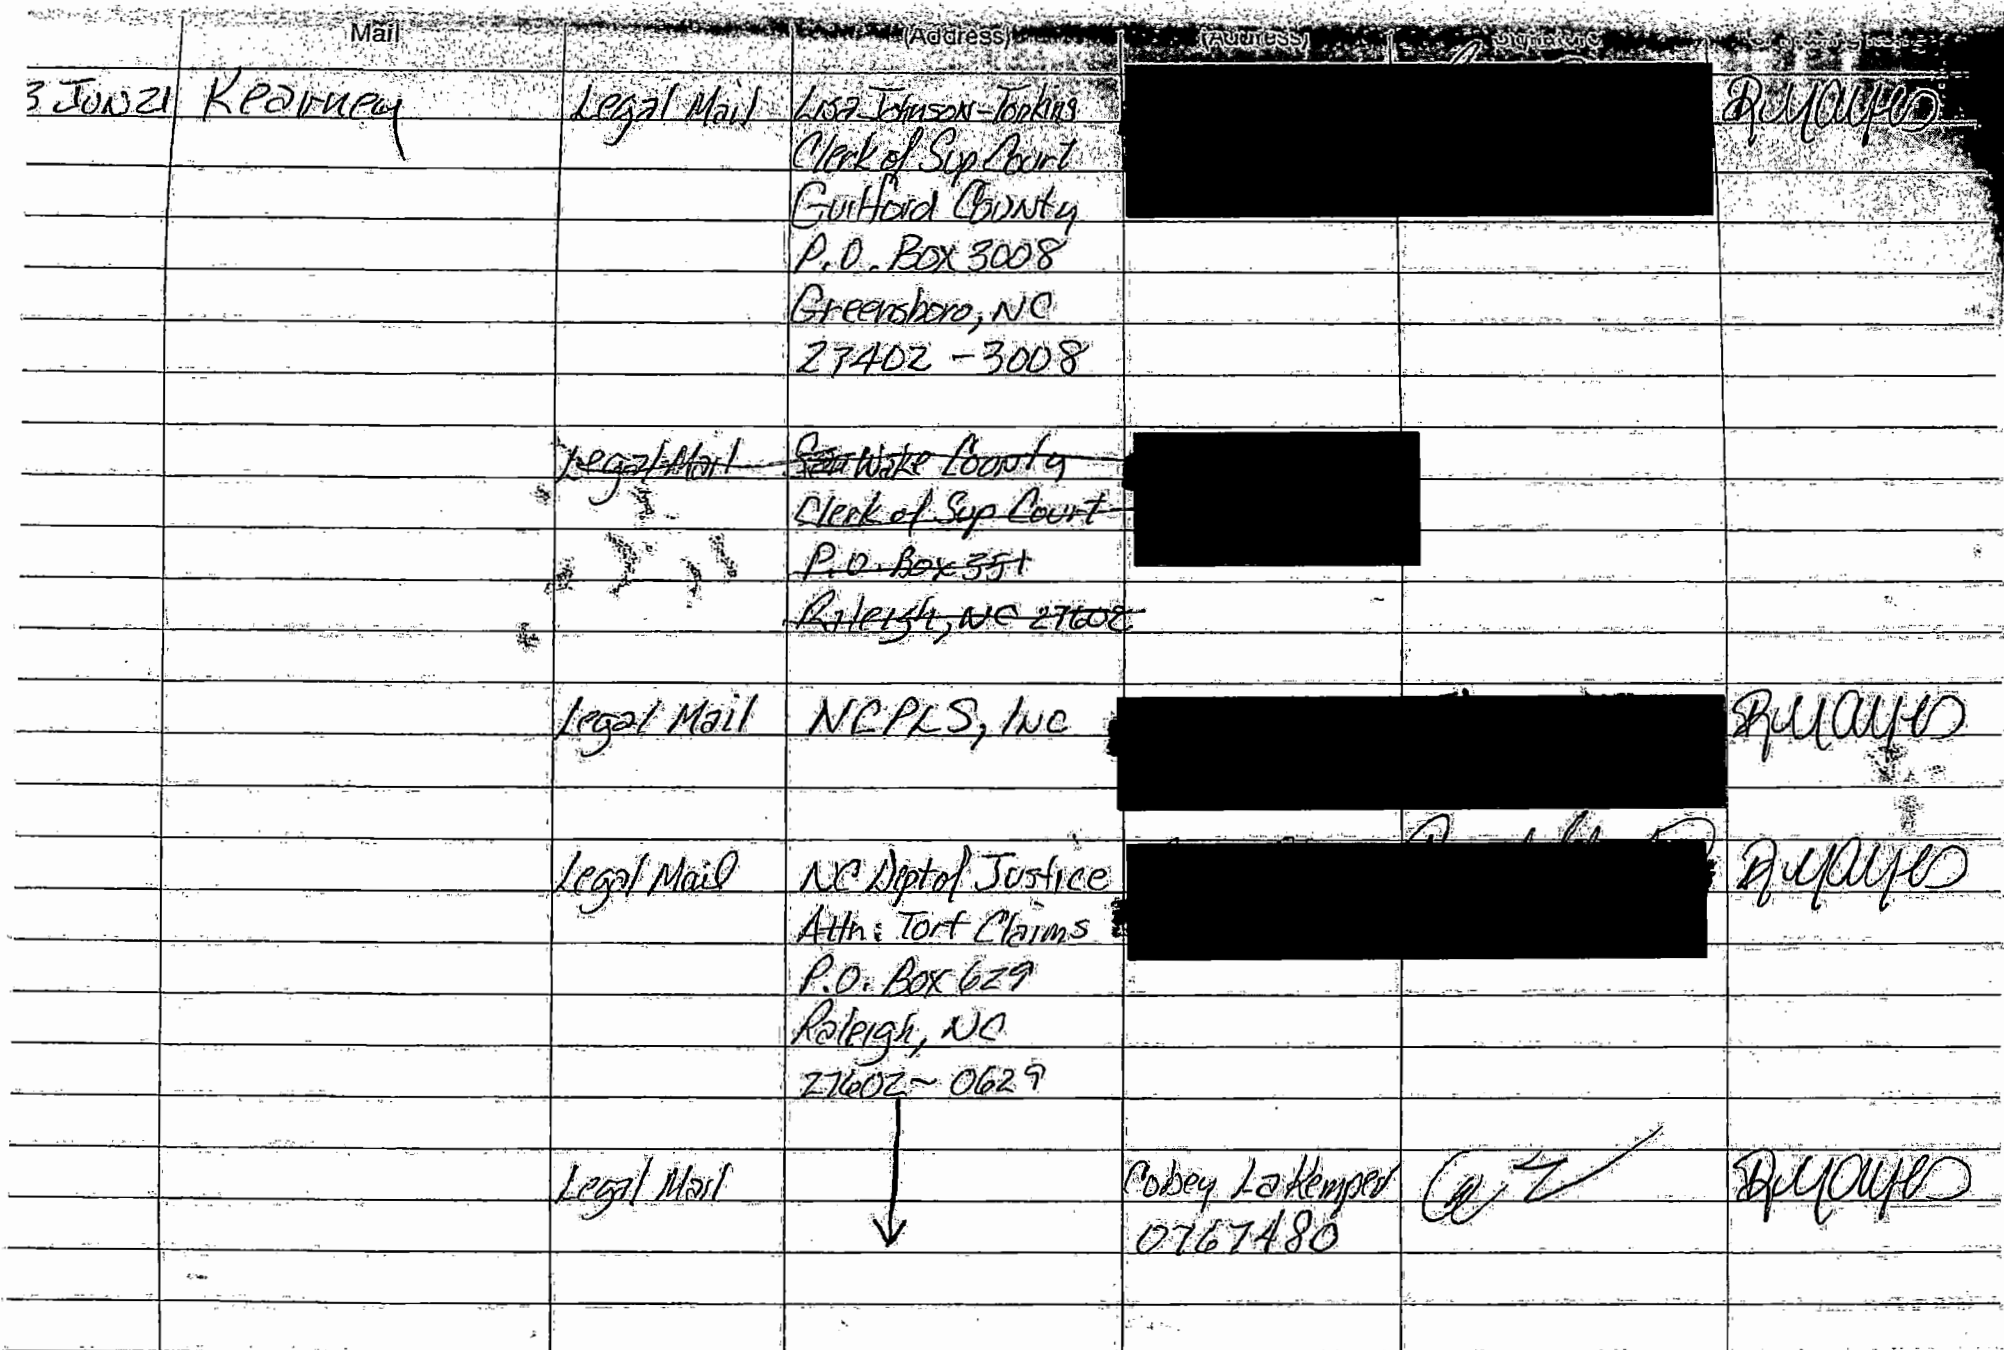 Mail (Address) (Address) Signature
3 JUN 21 Kearney Legal Mail Lisa Johnson-Tonkins RMayes
Clerk of Sup Court
Guilford County
P.O. Box 3008
Greensboro, NC
27402 - 3008
Legal Mail Wake County
Clerk of Sup Court
P.O. Box 351
Raleigh, NC 27602
Legal Mail NCPLS, Inc RMayes
Legal Mail NC Dept of Justice RMayes
Attn: Tort Claims
P.O. Box 629
Raleigh, NC
27602 ~ 0629
Legal Mail Cobey LaKemper RMayes
0767480